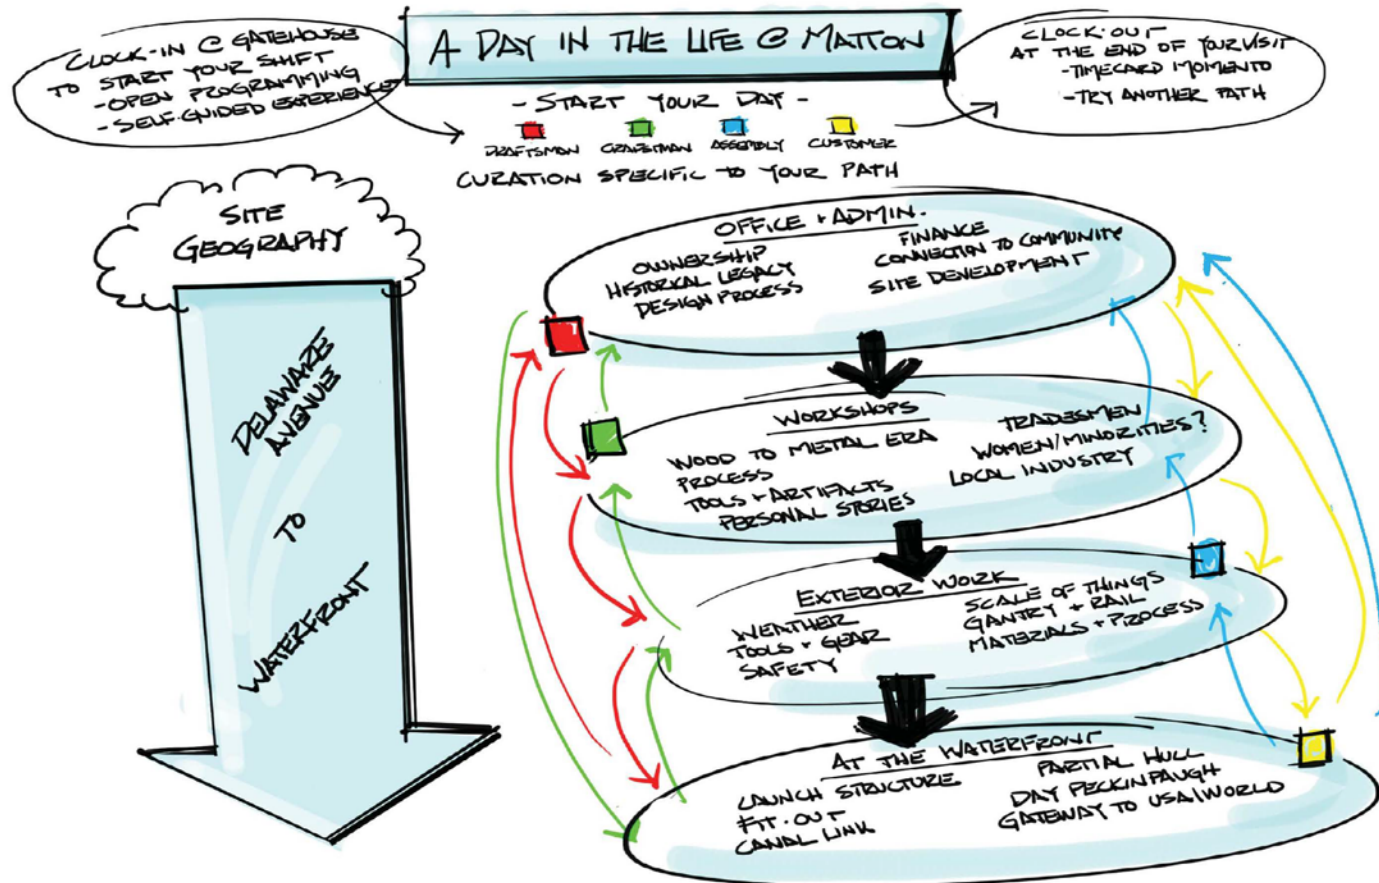 A DAY IN THE LIFE @ MATTON
CLOCK-IN @ GATEHOUSE
TO START YOUR SHIFT
-OPEN PROGRAMMING
-SELF-GUIDED EXPERIENCE
CLOCK-OUT
AT THE END OF YOUR VISIT
-TIMECARD MOMENTO
-TRY ANOTHER PATH
- START YOUR DAY -
DRAFTSMAN CRAFTSMAN ASSEMBLY CUSTOMER
CURATION SPECIFIC TO YOUR PATH
SITE
GEOGRAPHY
DELAWARE
AVENUE
TO
WATERFRONT
OFFICE + ADMIN.
OWNERSHIP
HISTORICAL LEGACY
DESIGN PROCESS
FINANCE
CONNECTION TO COMMUNITY
SITE DEVELOPMENT
WORKSHOPS
WOOD TO METAL ERA
PROCESS
TOOLS + ARTIFACTS
PERSONAL STORIES
TRADESMEN
WOMEN/MINORITIES?
LOCAL INDUSTRY
EXTERIOR WORK
WEATHER
TOOLS + GEAR
SAFETY
SCALE OF THINGS
GANTRY + RAIL
MATERIALS + PROCESS
AT THE WATERFRONT
LAUNCH STRUCTURE
FIT-OUT
CANAL LINK
PARTIAL HULL
DAY PECKINPAUGH
GATEWAY TO USA/WORLD